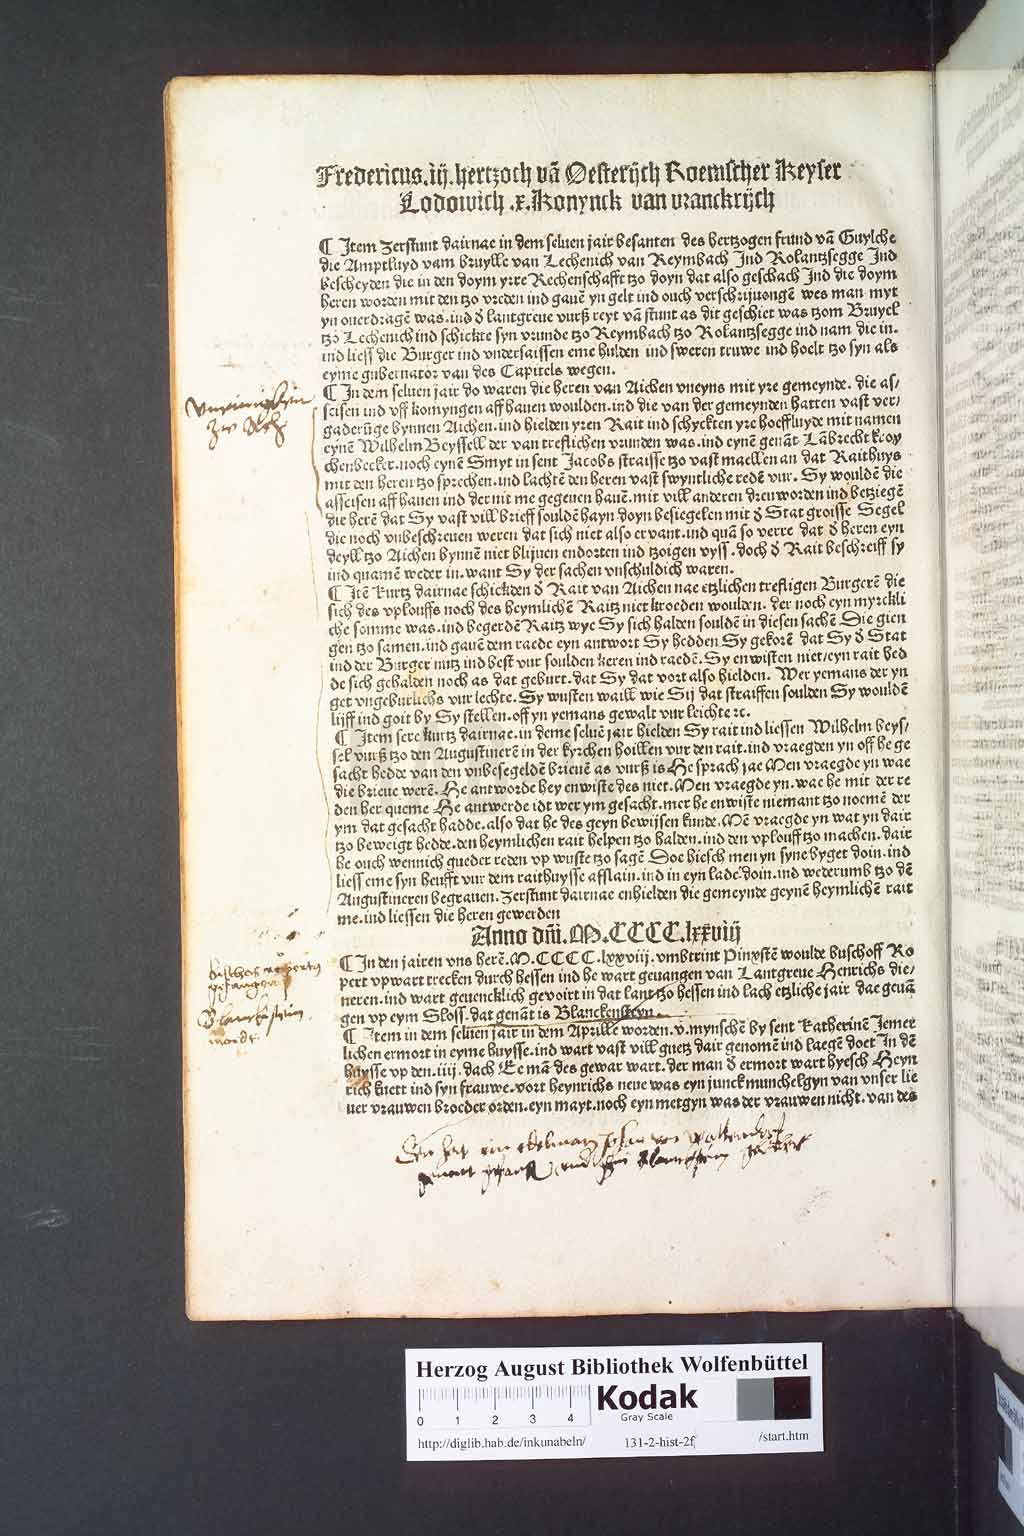 Fredericus.iij.hertzoch vā Oesterijch Roemscher Keyser
Lodowich .x.Konynck van vranckrijch
¶ Item zerstunt dairnae in dem seluen jair besanten des hertzogen frund vā Guylche
die Amptluyd vam bruylle van Lechenich van Reymbach Ind Rolantzsegge Ind
bescheyden die in den doym yrre Rechenschafft tzo doyn dat also geschach Ind die doym
heren worden mit den tzo vreden ind gauē yn gelt ind ouch verschrijuongē wes man myt
yn ouerdragē was.ind d lantgreue vurß reyt vā stunt as dit geschiet was tzom Bruyel
tzo Lechenich ind schickte syn vrunde tzo Reymbach tzo Rolantzsegge ind nam die in.
ind liess die Burger ind vndersaissen eme hulden ind sweren truwe ind hoelt tzo syn als
eyme gubernator van des Capitels wegen.
¶ In dem seluen jair do waren die heren van Aichen vneyns mit yre gemeynde. die as/
seisen ind vff komyngen aff hauen woulden.ind die van der gemeynden hatten vast ver/
gaderūge bynnen Aichen.ind hielden yren Rait ind schyckten yre hoeffluyde mit namen
eynē Wilhelm Beyssell der van treflichen vrunden was.ind eynē genāt Lābrecht kroy
chenbecker.noch eynē Smyt in sent Jacobs straisse tzo vast maellen an dat Raithuys
mit den heren tzo sprechen.ind lachtē den heren vast swyntliche redē vur. Sy wouldē die
asseisen aff hauen ind der nit me gegeuen hauē.mit vill anderen dreuworden ind betziegē
die herē dat Sy vast vill brieff souldē hayn doyn besiegelen mit d Stat groisse Segel
die noch vnbeschreuen weren dat sich niet also ervant.ind quā so verre dat d heren eyn
deyll tzo Aichen bynnē niet blijuen endorten ind tzoigen vyss.doch d Rait beschreiff sy
ind quamē weder in.want Sy der sachen vnschuldich waren.
¶ Itē kurtz dairnae schickden d Rait van Aichen nae etzlichen trefligen Burgerē die
sich des vplouffs noch des heymlichē Raitz niet kroeden woulden. der noch eyn myrckli
che somme was.ind begerdē Raitz wye Sy sich halden souldē in diesen sachē. Die gien
gen tzo samen.ind gauē dem raede eyn antwort Sy hedden Sy gekorē dat Sy d Stat
ind der Burger nutz ind best vur soulden keren ind raedē. Sy enwisten niet/eyn rait hed
de sich gehalden noch as dat geburt.dat Sy dat vort also hielden. Wer yemans der yn
get vngeburlichs vur lechte. Sy wusten waill wie Sij dat straiffen soulden Sy wouldē
lijff ind goit by Sy stellen.off yn yemans gewalt vur leichte rc.
¶ Item sere kurtz dairnae.in deme seluē jair hielden Sy rait ind liessen Wilhelm beys/
sel vurß tzo den Augustinerē in der kyrchen hoillen vur den rait.ind vraegden yn off he ge
sacht hedde van den vnbesegeldē brieuē as vurß is He sprach jae Men vraegde yn wae
die brieue werē. He antworde hey enwiste des niet. Men vraegde yn.wae he mit der re
den her queme He antwerde idt wer ym gesacht.mer he enwiste niemant tzo noemē der
ym dat gesacht hadde.also dat he des geyn bewijsen kunde. Mē vraegde yn wat yn dair
tzo beweigt hedde.den heymlichen rait helpen tzo halden.ind den vplouff tzo machen.dair
he ouch wennich gueder reden vp wuste tzo sagē Doe hiesch men yn syne byget doin.ind
liess eme syn heufft vur dem raithuysse afflain.ind in eyn lade doin.ind wederumb tzo dē
Augustineren begrauen. Zerstunt dairnae enhielden die gemeynde geynē heymlichē rait
me.ind liessen die heren gewerden
Anno dn̄i.M.CCCC.lxxviij
¶ In den jairen vns herē.M.CCCC.lxxviij.vmbtrint Pinxstē woulde buschoff Ro
pert vpwart trecken durch hessen ind he wart geuangen van Lantgreue Henrichs die/
neren.ind wart geuencklich gevoirt in dat lant tzo hessen ind lach etzliche jair dae geuā
gen vp eym Sloss.dat genāt is Blanckensteyn.
¶ Item in dem seluen jair in dem Aprille worden.v.mynschē by sent Katherinē Jemer
lichen ermort in eyme huysse.ind wart vast vill guetz dair genomē ind laegē doet In dē
huysse vp den.iiij.dach Ee mā des gewar wart.der man d ermort wart hyesch Heyn
rich knett ind syn frauwe.vort heynrichs neue was eyn junck munchelgyn van vnser lie
uer vrauwen broeder orden.eyn mayt.noch eyn metgyn was der vrauwen nicht.van des
Herzog August Bibliothek Wolfenbüttel
Kodak
Gray Scale
0 1 2 3 4
http://diglib.hab.de/inkunabeln/ 131-2-hist-2f /start.htm